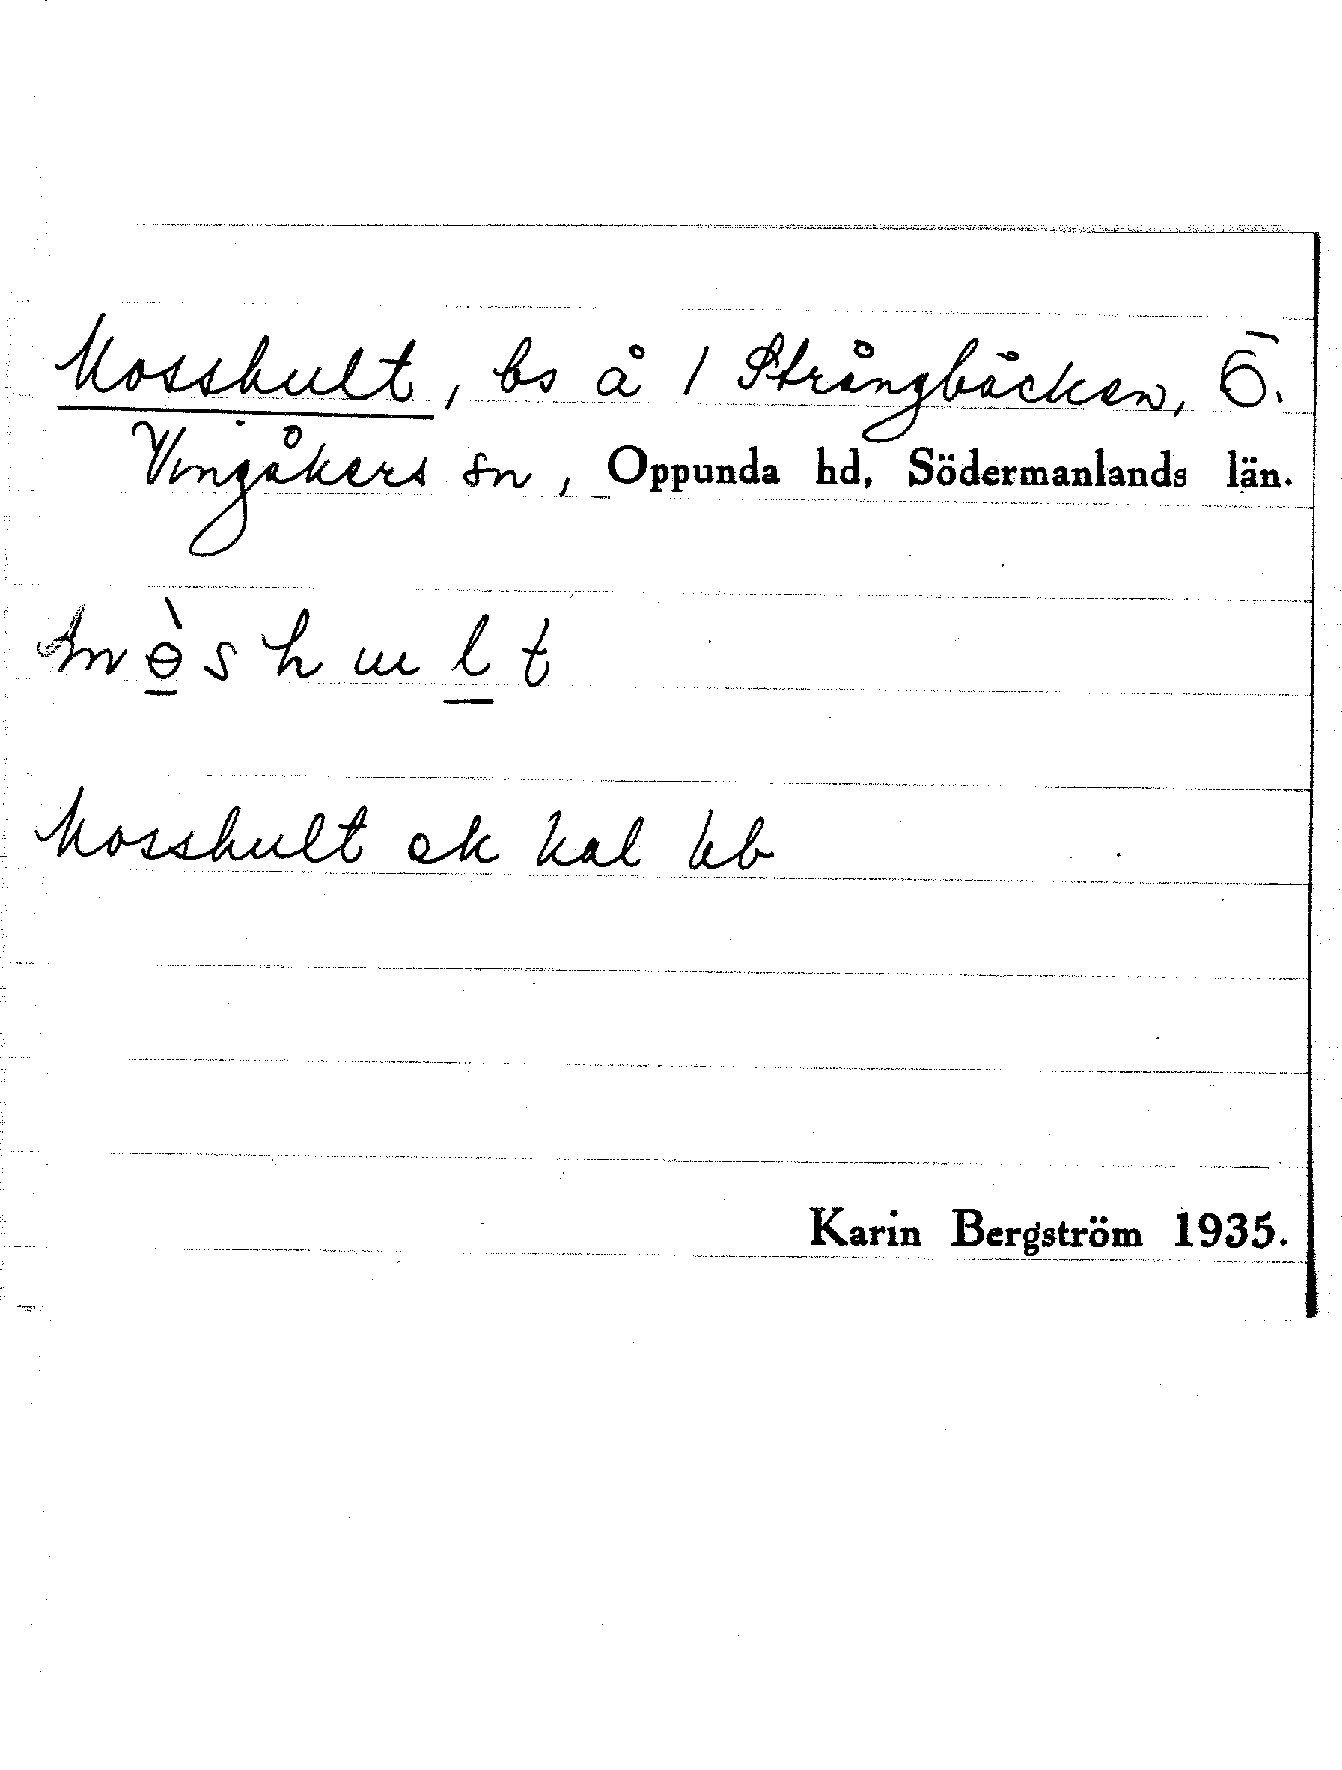 Mosshult, bs å 1 Strångbäcken, Ö.
Vingåkers sn, Oppunda hd, Södermanlands län.
mɵ̀shult
Mosshult ek kal kb
Karin Bergström 1935.